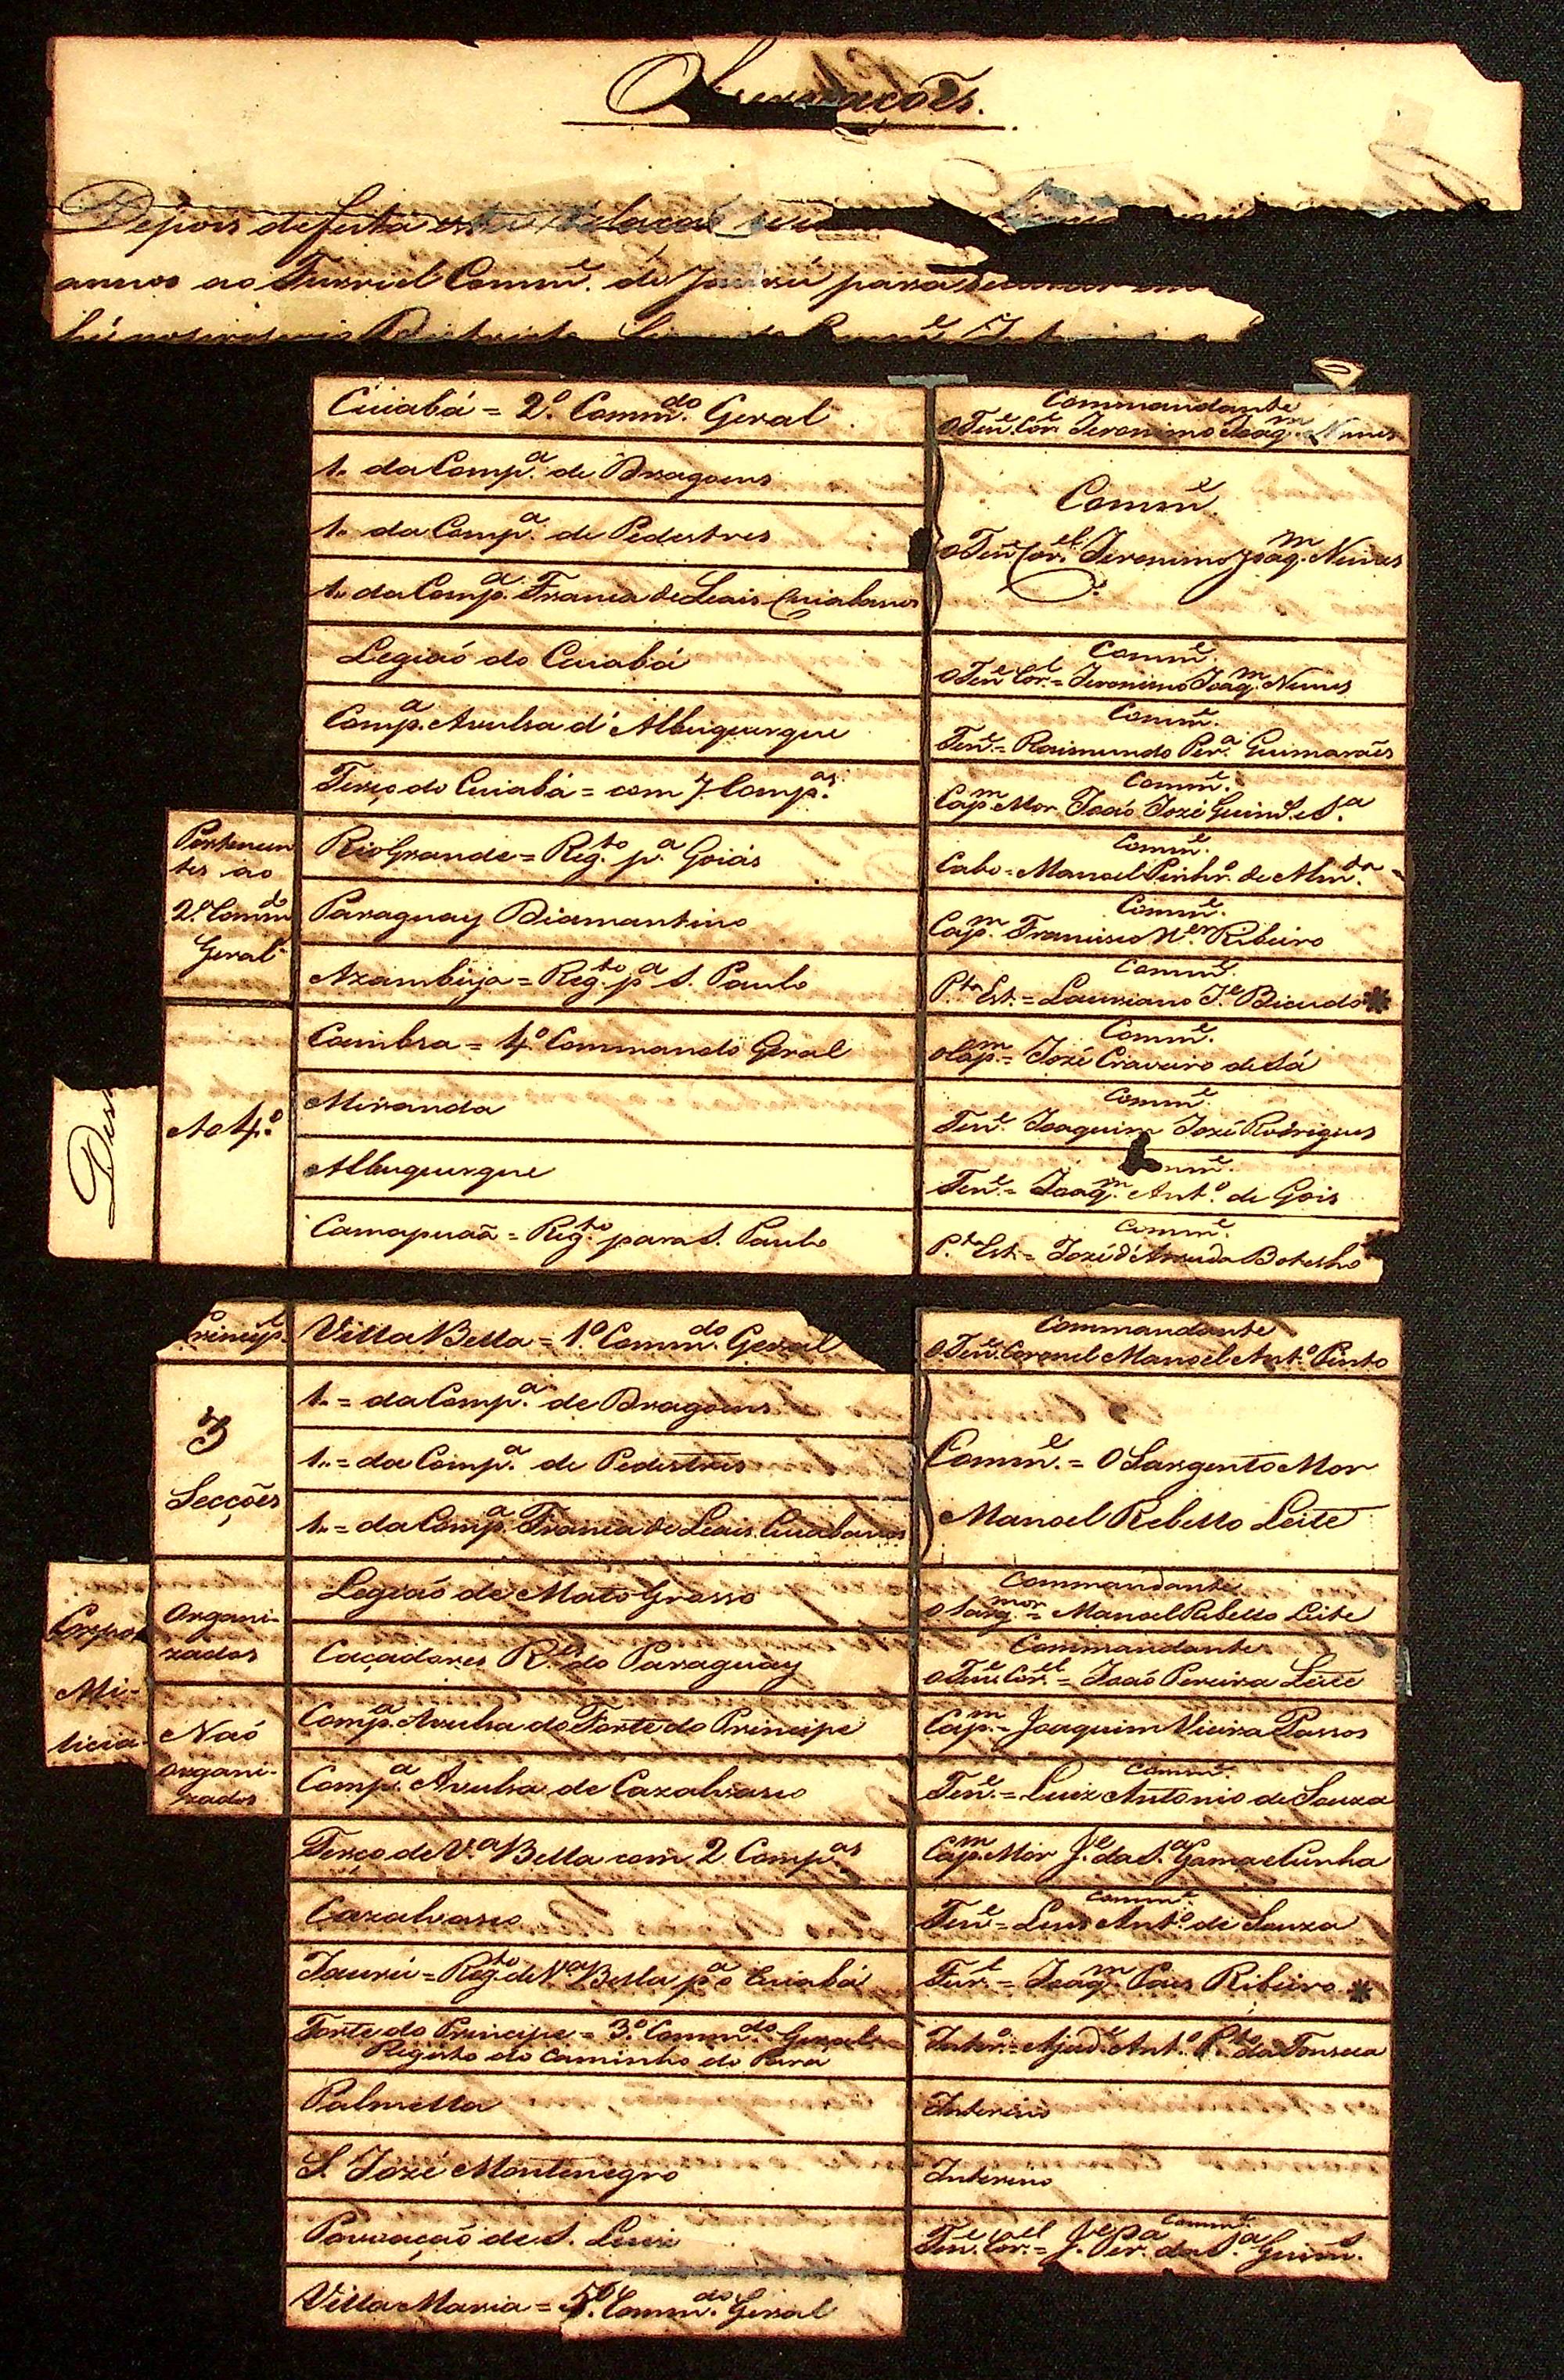 Observações.
Depois de feita esta Relação
annos ao Furriel Comm.e de Jaurú para
Cuiabá = 2.º Comm.do Geral
Commandante
O Ten.e Cor.el Jeronimo Joaq.m Nunes
1.. da Comp.a de Dragoens
1.. da Comp.a de Pedestres
1.. da Comp.a Franca de Leais Cuiabanos
Comm.e
O Ten.e Cor.el Jeronimo Joaq.m Nunes
Legiaó do Cuiabá
Comm.e
O Ten.e Cor.el = Jeronimo Joaq.m Nunes
Comp.a Avulsa d'Albuquerque
Comm.e
Ten.e = Raimundo Per.a Guimarães
Terço do Cuiabá = com 7 Comp.as
Comm.e
Cap.m Mor Joaó Jozé Guim.es S.a
Pertencen
tes ao
2.º Comm.do
Geral
Rio Grande = Reg.to p.a Goiás
Comm.e
Cabo = Manoel Pinhr.o de Alm.da
Paraguay Diamantino
Comm.e
Cap.m Francisco N.es Ribeiro
Azambuja = Reg.to p.a S. Paulo
Comm.e
P.ta Est. = Lauriano J.e Bicudo *
Coimbra = 4.º Commando Geral
Comm.e
O Cap.m = Jozé Craveiro de Sá
Ao 4.º
Miranda
Comm.e
Ten.e Joaquim Jozé Rodrigues
Albuquerque
Comm.e
Ten.e = Joaq.m Ant.o de Gois
Camapuaã = Reg.to para S. Paulo
Comm.e
P.ta Est. = Jozé d'Arruda Botelho
Des
Princip.l
Villa Bella = 1.º Comm.do Geral
Commandante
O Ten.e Coronel Manoel Ant.o Pinto
3
Secções
1.. = da Comp.a de Dragoens
1.. = da Comp.a de Pedestres
1.. = da Comp.a Franca de Leais Cuiabanos
Comm.e = O Sargento Mor
Manoel Rebello Leite
Corpos
Mi-
licia.
Organi-
zados
Legiaó de Mato Grosso
Commandante
O Sarg.mor = Manoel Rebello Leite
Caçadores R.es do Paraguay
Commandante
O Ten.e Cor.el = Joaó Pereira Leite
Naó
organi-
zados
Comp.a Avulsa do Forte do Principe
Cap.m = Joaquim Vieira Passos
Comp.a Avulsa de Cazalvasco
Comm.e
Ten.e = Luiz Antonio de Souza
Terço de V.a Bella com 2 Comp.as
Cap.m Mór J.e da S.a Gama e Cunha
Cazalvasco
Comm.e
Ten.e = Luis Ant.o de Souza
Jaurú = Reg.to de V.a Bella p.a o Cuiabá
Fur.l = Joaq.m Paes Ribeiro *
Forte do Principe = 3.º Comm.do Geral
Registo do caminho do Pará
Inter.o = Ajud.e Ant.o P.to da Fonseca
Palmella
Interino
S. Jozé Montenegro
Interino
Povoaçaõ de S. Luiz
Comm.e
Ten.e Cor.el = J.e Per.a da S.a Guim.s
Villa Maria = 5.º Comm.do Geral